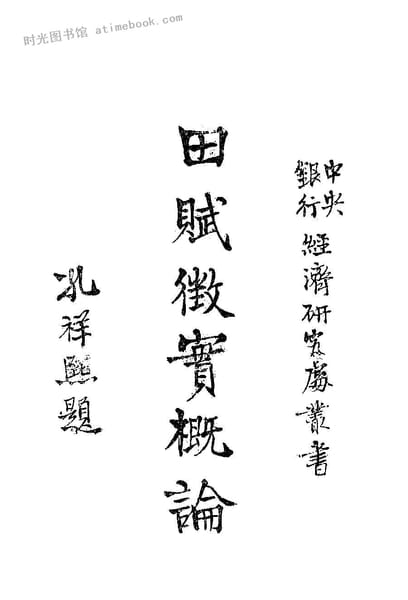 时光图书馆 atimebook.com
中央銀行經濟研究處叢書
田賦徵實概論
孔祥熙題